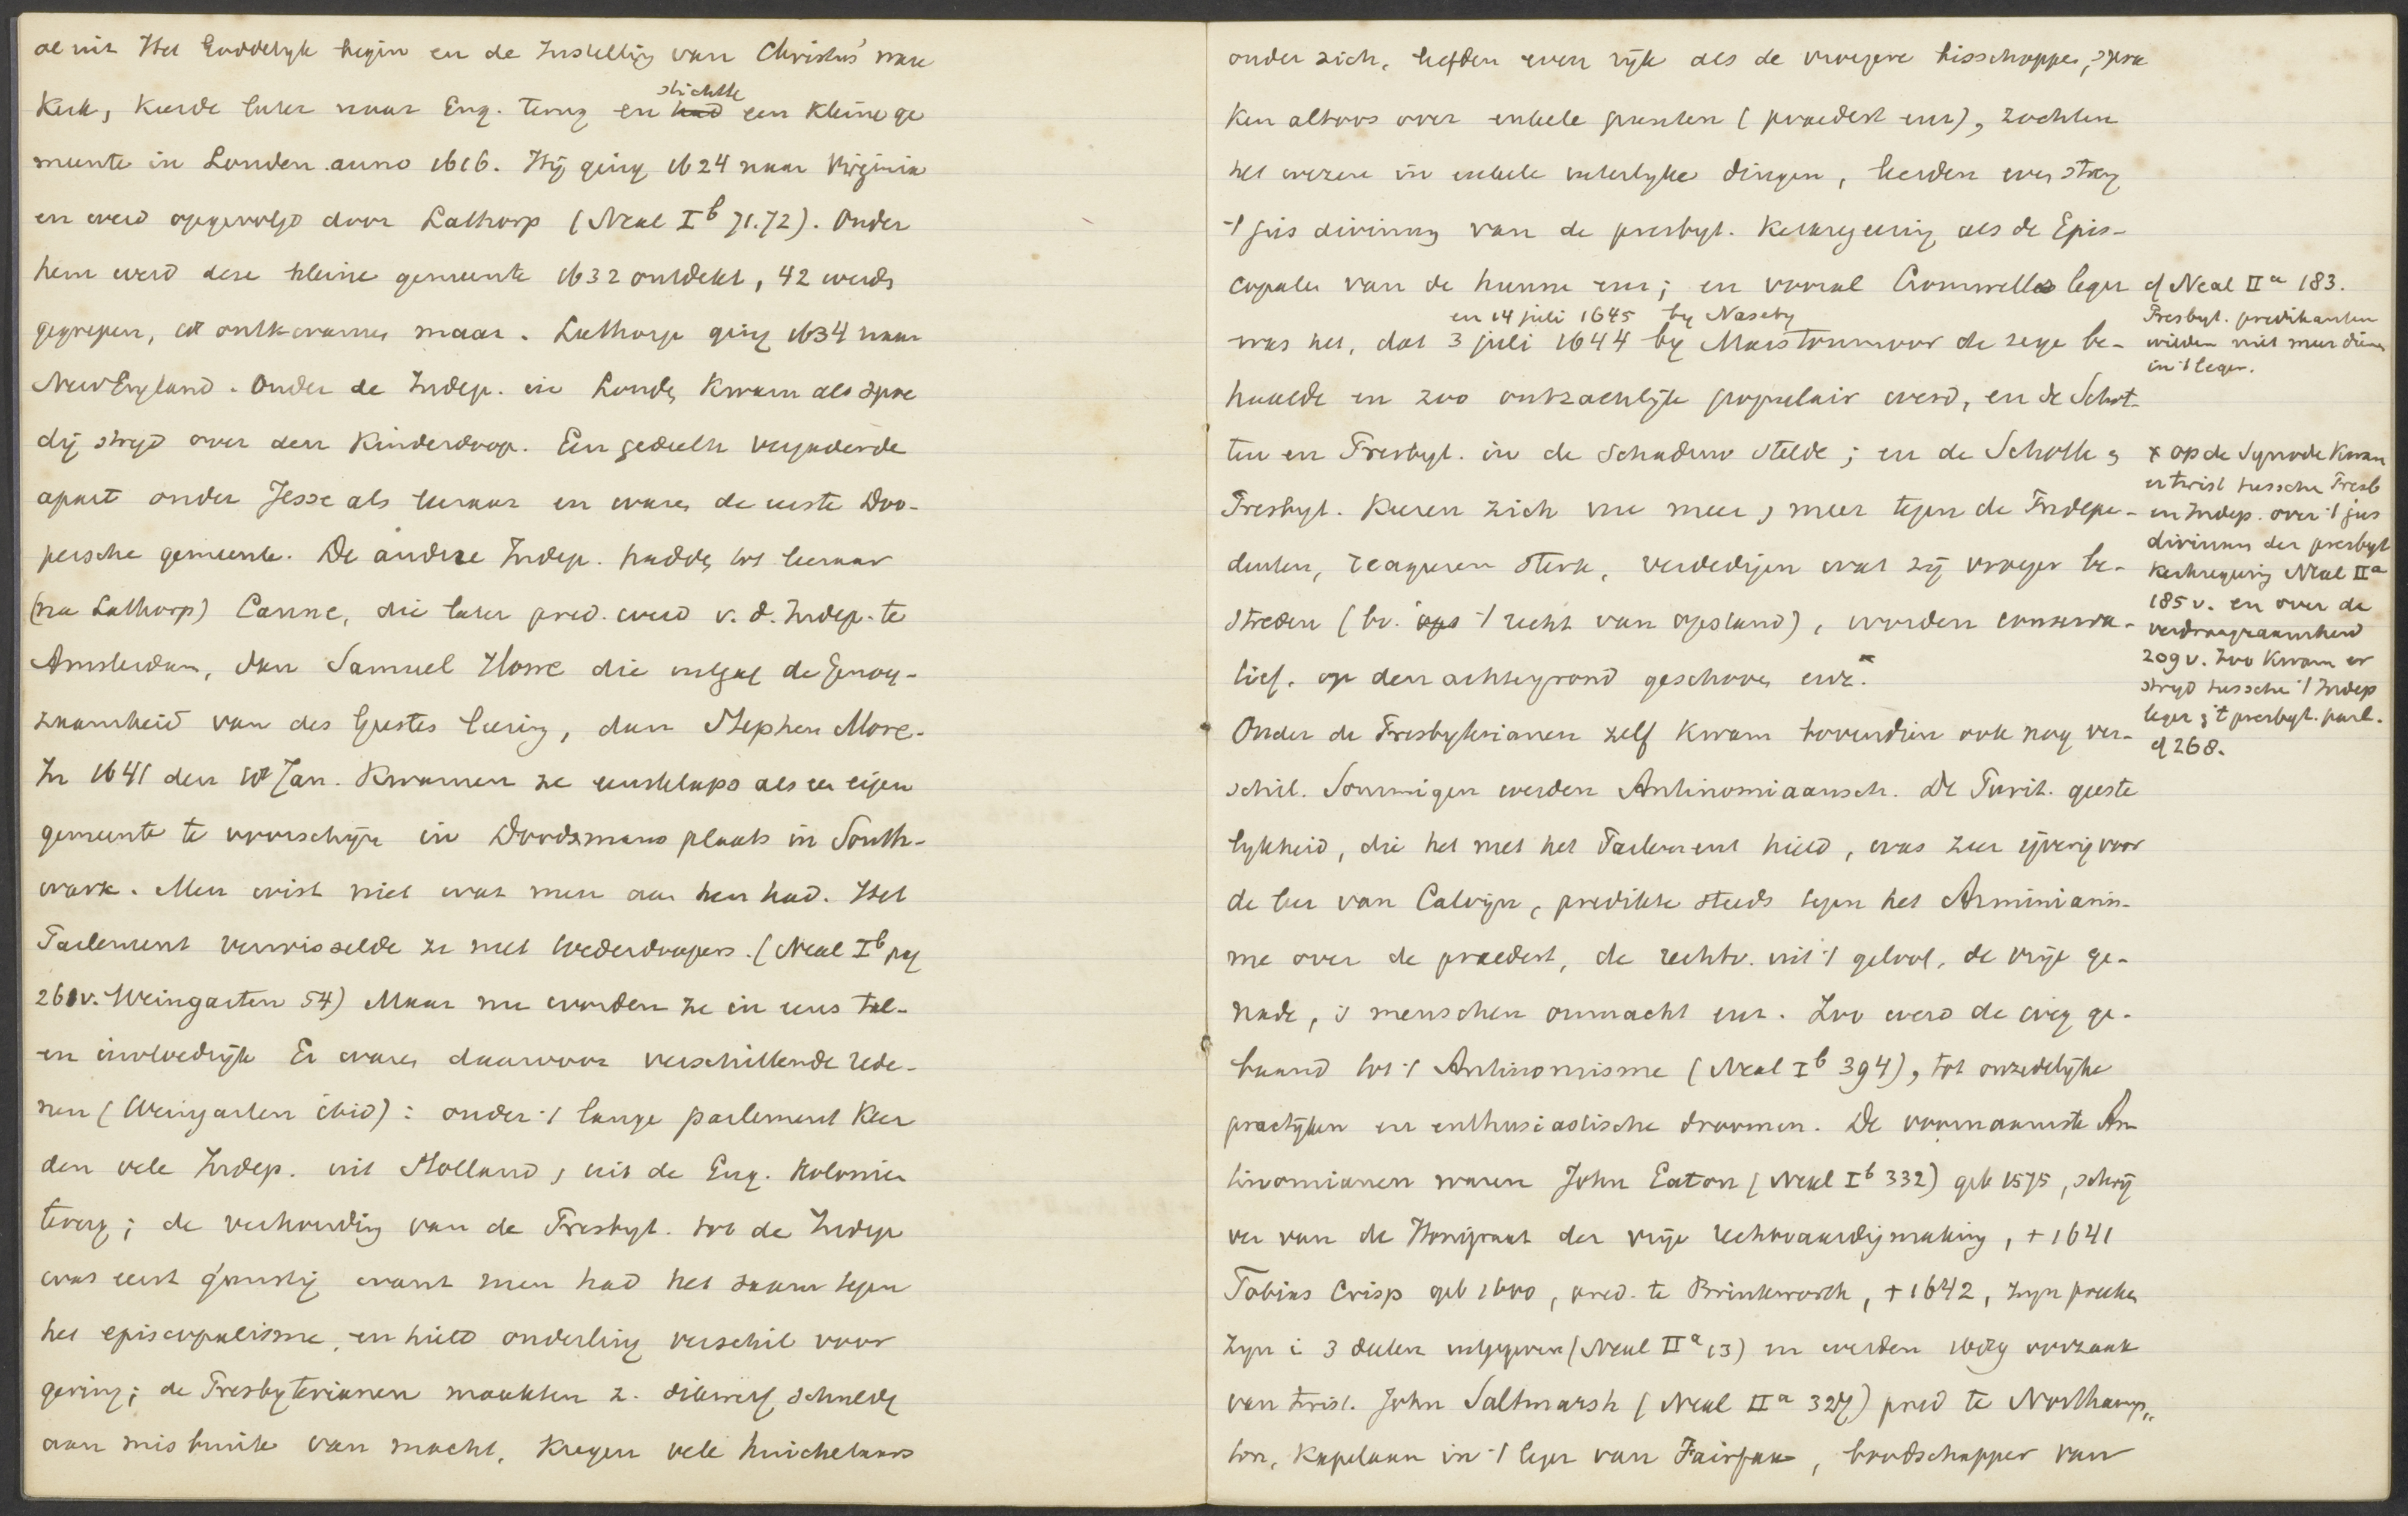 ae uit Het Goddelyk begin en de Instelling van Christus' ware
Kerk, keerde later naar Eng. terug en stichtte had een kleine ge
meente in Londen anno 1616. Hij ging 1624 naar Virginia
en werd opgevolgd door Lathorp (Neal I b 71.72). Onder
hem werd deze kleine gemeente 1632 ontdekt, 42 werden
gegrepen, 18 ontkwamen maar. Lathorp ging 1634 naar
New England. Onder de Indep. in Londen kwam als spoe
dig strijd over den Kinderdoop. Een gedeelte vergaderde
apart onder Jesse als leeraar en waren de eerste Doo-
persche gemeente. De andere Indep. hadden tot leeraar
(na Lathorp) Canne, die later pred. werd v. d. Indep. te
Amsterdam, dan Samuel Howe die uitgaf de Genoeg-
zaamheid van des Geestes leering, dan Stephen More.
In 1641 den 18 Jan. kwamen ze eensklaps als een eigen
gemeente te voorschijn in Doodsmans plaats in South-
wark. Men wist niet wat men aan hen had. Het
Parlement verwisselde ze met Wederdoopers. (Neal I b pag
261v. Weingarten 54) Maar nu worden ze in eens tal-
en invloedrijk Er waren daarvoor verschillende rede-
nen (Weingarten ibid): onder 't lange parlement keer
den vele Indep. uit Holland, uit de Eng. Kolonien
terug; de verhouding van de Presbyt. tot de Indep
was eerst gunstig want men had het saam tegen
het episcopalisme, en hield onderling verschil voor
gering; de Presbyterianen maakten z. dikwerf schuldig
aan misbruik van macht, kregen vele huichelaars
onder zich, leefden even rijk als de vroegere bisschoppen, spra
ken altoos over enkele punten (praedest enz), zochten
het wezen in enkele uiterlyke dingen, leerden even streng
't jus divinum van de presbyt. Kerkregeering als de Epis-
copalen van de hunne enz; en vooral Cromwells leger
en 14 juli 1645 by Naseby
was het, dat 3 juli 1644 by Marstonmoor de zege be-
haalde en zoo ontzachlijk populair werd, en de Schot-
ten en Presbyt. in de schaduw stelde; en de Schotten en
Presbyt. keeren zich nu meer en meer tegen de Indepe-
denten, reageren sterk, verdedigen wat zij vroeger be-
streden (bv. 't recht van opstand), worden conserva-
tief, op den achtergrond geschoven enz. x
Onder de Presbyterianen zelf kwam bovendien ook nog ver-
schil. Sommigen werden Antinomiaansch. De Purit. geeste
lykheid, die het met het Parlement hield, was zeer ijverig voor
de leer van Calvijn, predikte steeds tegen het Arminianis-
me over de praedest, de rechtv. uit 't geloof, de vrije ge-
nade, 's menschen onmacht enz. Zoo werd de weg ge-
baand tot 't Antinomisme (Neal I b 394), tot onzedelijke
practijken en enthusiastische droomen. De voornaamste An
tinomianen waren John Eaton (Neal I b 332) geb 1575, schrij
ver van de Honigraat der vrije rechtvaardigmaking, + 1641
Tobias Crisp geb 1600, pred. te Brinkworth, + 1642, zyn preeken
zyn i 3 deelen uitgegeven (Neal II a 13) en werden oorzaak
van twist. John Saltmarsh (Neal II a 327) pred te Northamp„
ton, Kapelaan in 't leger van Fairfax, boodschapper van
cf Neal II a 183.
Presbyt. predikanten
wilden niet meer dienen
in 't leger.
x op de Synode kwam
er twist tussche Presb
en Indep. over 't jus
divinum der presbyt
kerkregering Neal II a
185 v. en over de
verdraagzaamheid
209 v. Zoo kwam er
strijd tussche 't Indep
leger en 't presbyt. parl.
cf 268.